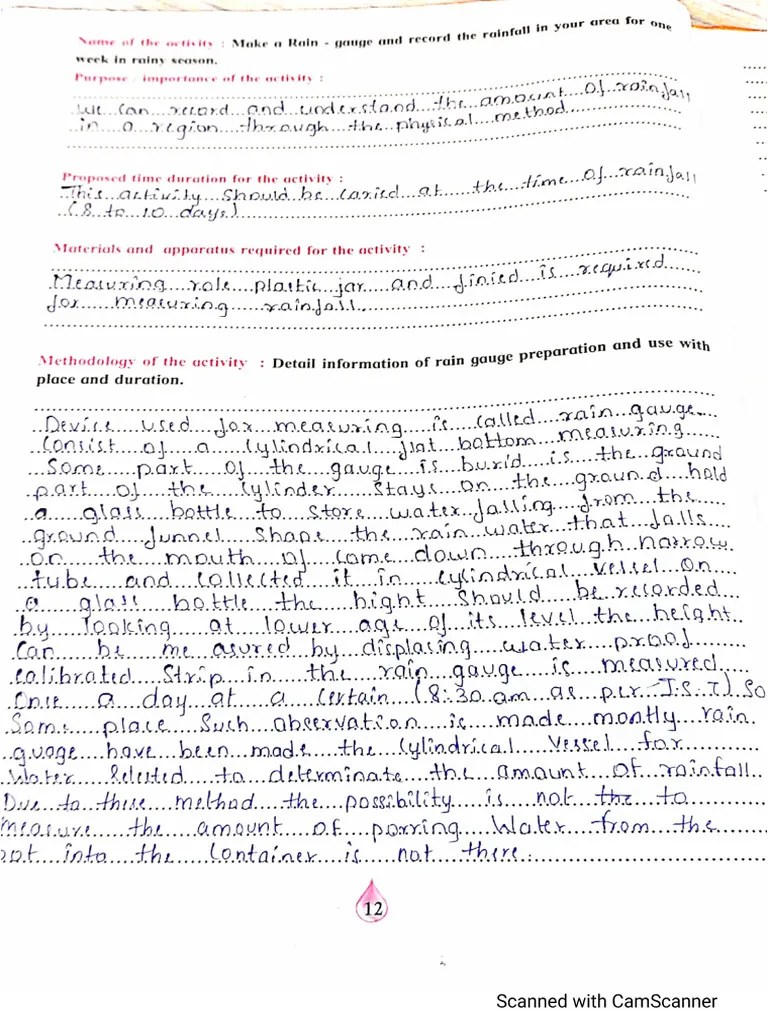 Name of the activity : Make a Rain - gauge and record the rainfall in your area for one
week in rainy season.
Purpose / importance of the activity :
We can record and understand the amount of rainfall
in a region through the physical method
Proposed time duration for the activity :
This activity should be caried at the time of rainfall
(8 to 10 days)
Materials and apparatus required for the activity :
Measuring role plastic jar and finied is required
for measuring rainfall.
Methodology of the activity : Detail information of rain gauge preparation and use with
place and duration.
Device used for measuring is called rain gauge
Consist of a cylindrical flat bottom measuring
Some part of the gauge is burid is the ground
part of the cylinder stays on the ground hold
a glass bottle to store water falling from the
ground funnel shape the rain water that falls
on the mouth of come down through narrow
tube and collected it in cylindrical vessel on
a glass bottle the hight should be recorded
by looking at lower age of its level the height
Can be measured by displasing water proof
calibrated Strip in the rain gauge is measured
Once a day at a certain (8:30 am as per I.S.T) So
Same place Such observation is made montly rain
guage have been made the cylindrical Vessel for
Water Selected to determinate the amount of rainfall
Due to these method the possibility is not the to
measure the amount of porring Water from the
pot into the container is not there.
12
Scanned with CamScanner